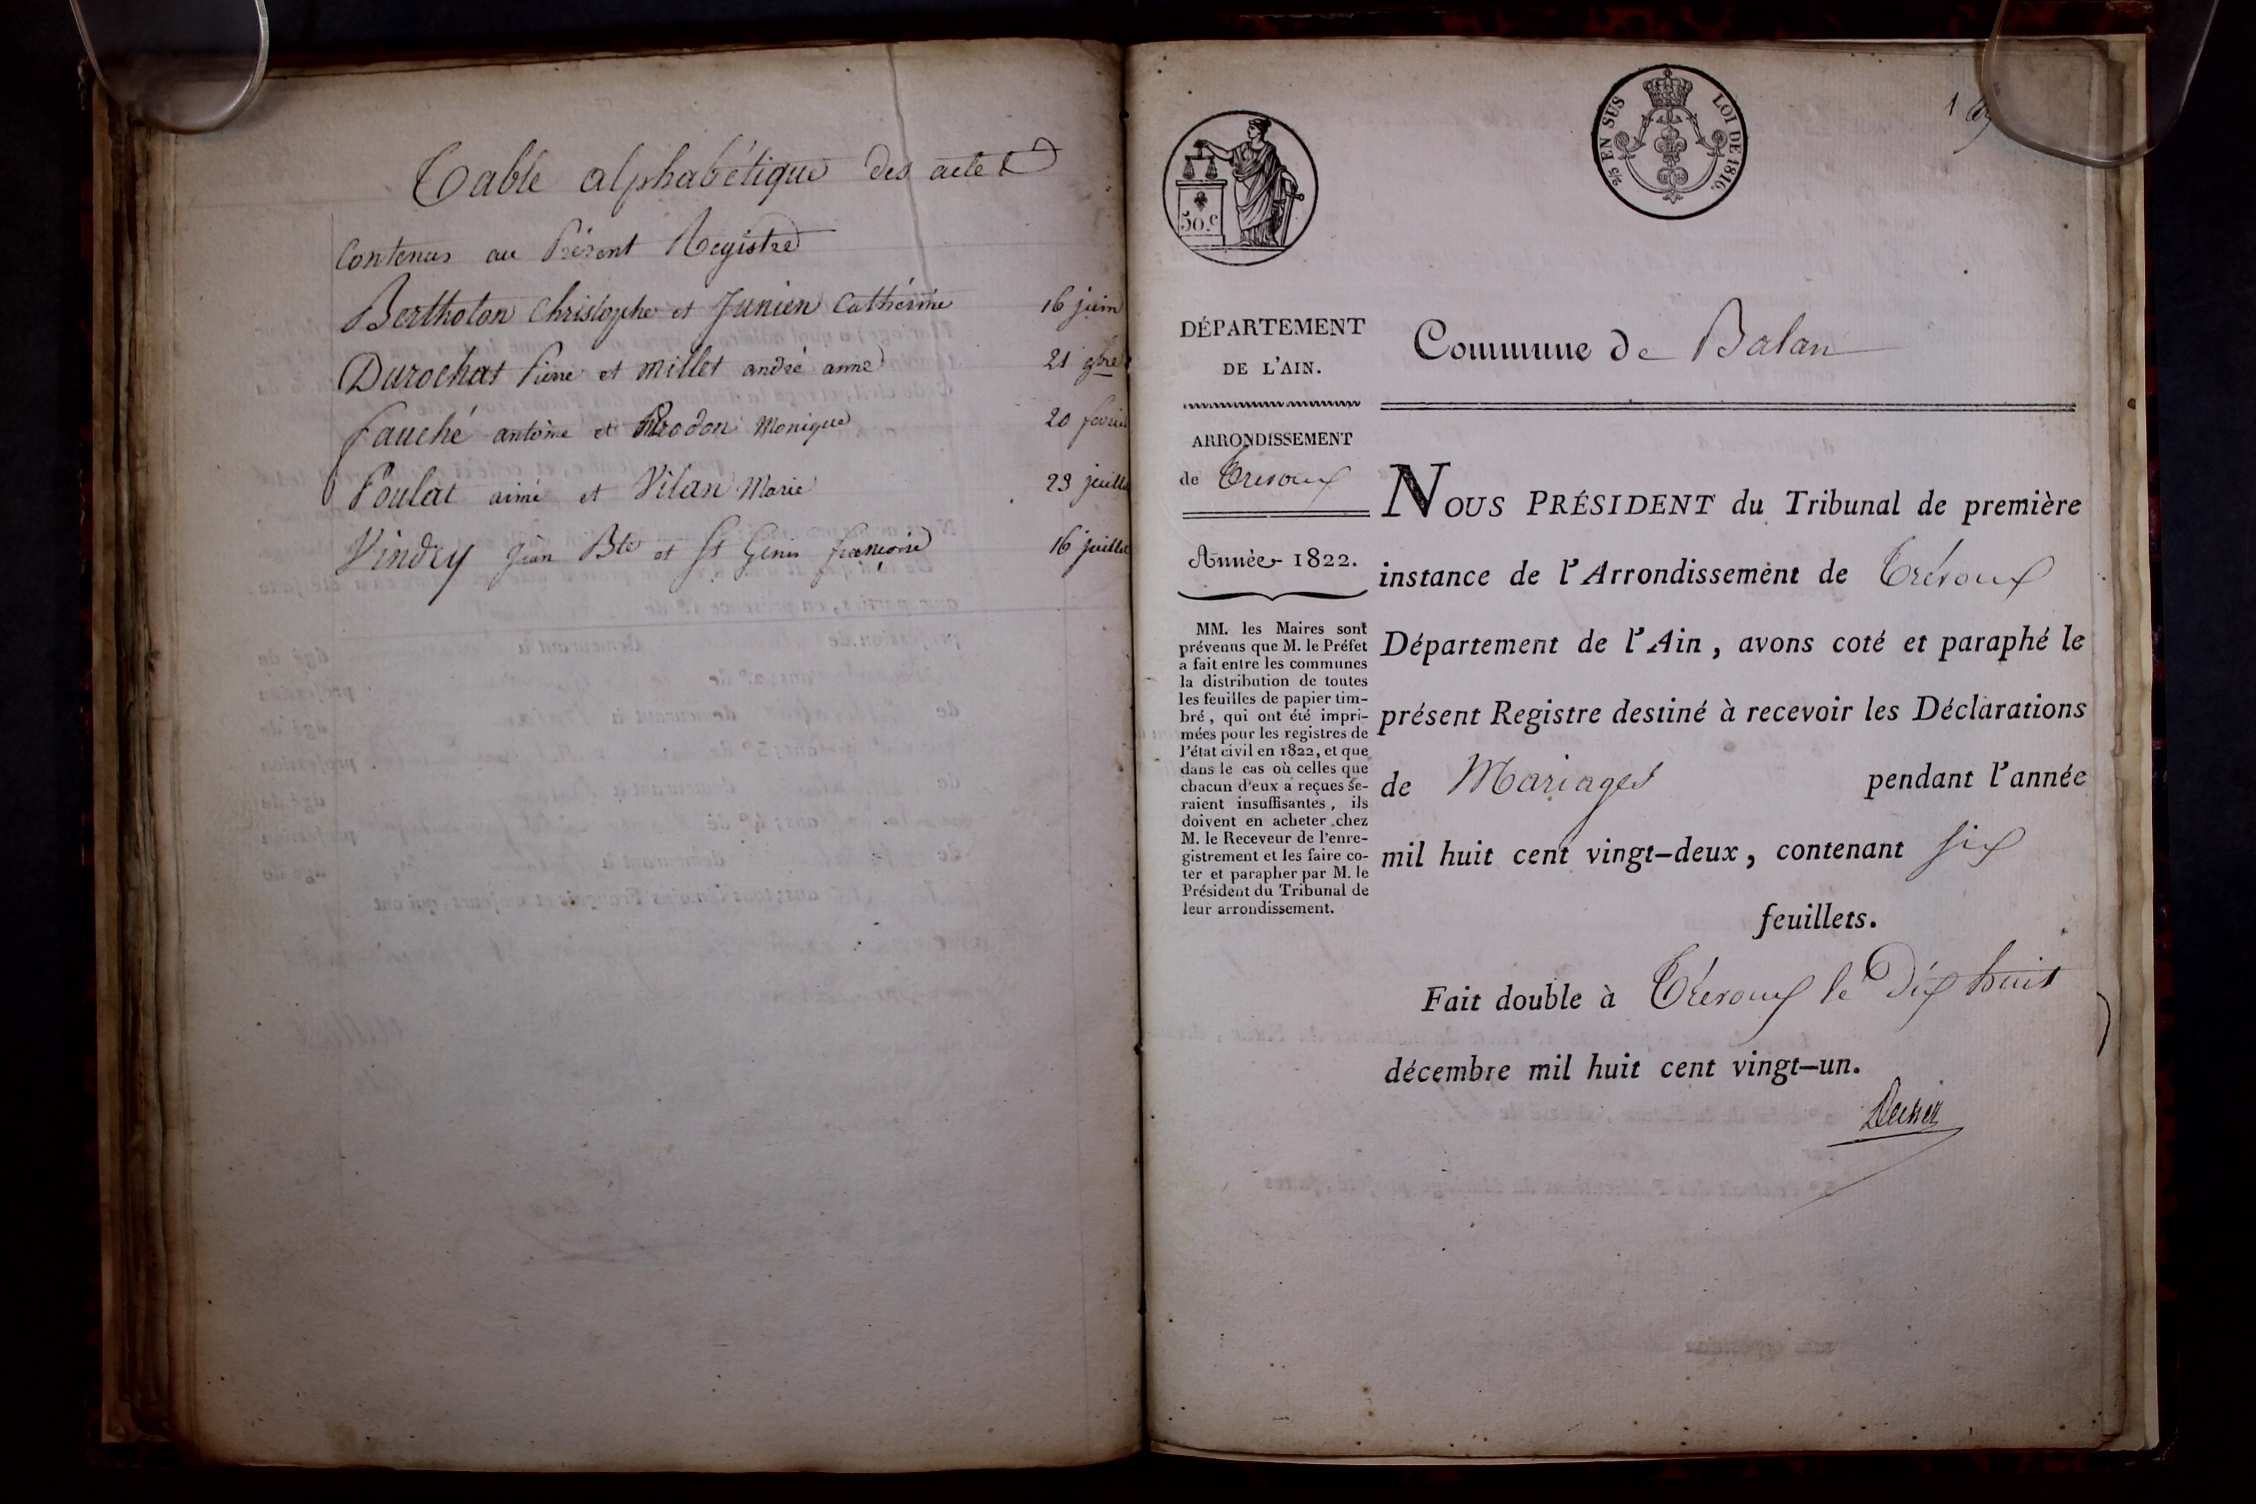 Table alphabétique des actes
Contenus au Présent Registre
Bertholon Christophe et Junien Cathérine 16 juin
Durochat Pierre et Millet andré anne 21 9bre
Fauché antoine et Brodon Monique 20 fevrier
Poulat aimé et Vilan Marie 23 juillet
Vindry Jean Bte et St Genis françoise 16 juillet
50.c
2/5 EN SUS LOI DE 1816.
1er
DÉPARTEMENT
DE L'AIN.
ARRONDISSEMENT
de Trévoux
Année 1822.
MM. les Maires sont
prévenus que M. le Préfet
a fait entre les communes
la distribution de toutes
les feuilles de papier tim-
bré, qui ont été impri-
mées pour les registres de
l'état civil en 1822, et que
dans le cas où celles que
chacun d'eux a reçues se-
raient insuffisantes, ils
doivent en acheter chez
M. le Receveur de l'enre-
gistrement et les faire co-
ter et parapher par M. le
Président du Tribunal de
leur arrondissement.
Commune de Balan
NOUS PRÉSIDENT du Tribunal de première
instance de l'Arrondissement de Trévoux
Département de l'Ain, avons coté et paraphé le
présent Registre destiné à recevoir les Déclarations
de Mariages pendant l'année
mil huit cent vingt-deux, contenant six
feuillets.
Fait double à Trévoux le Dix huit
décembre mil huit cent vingt-un.